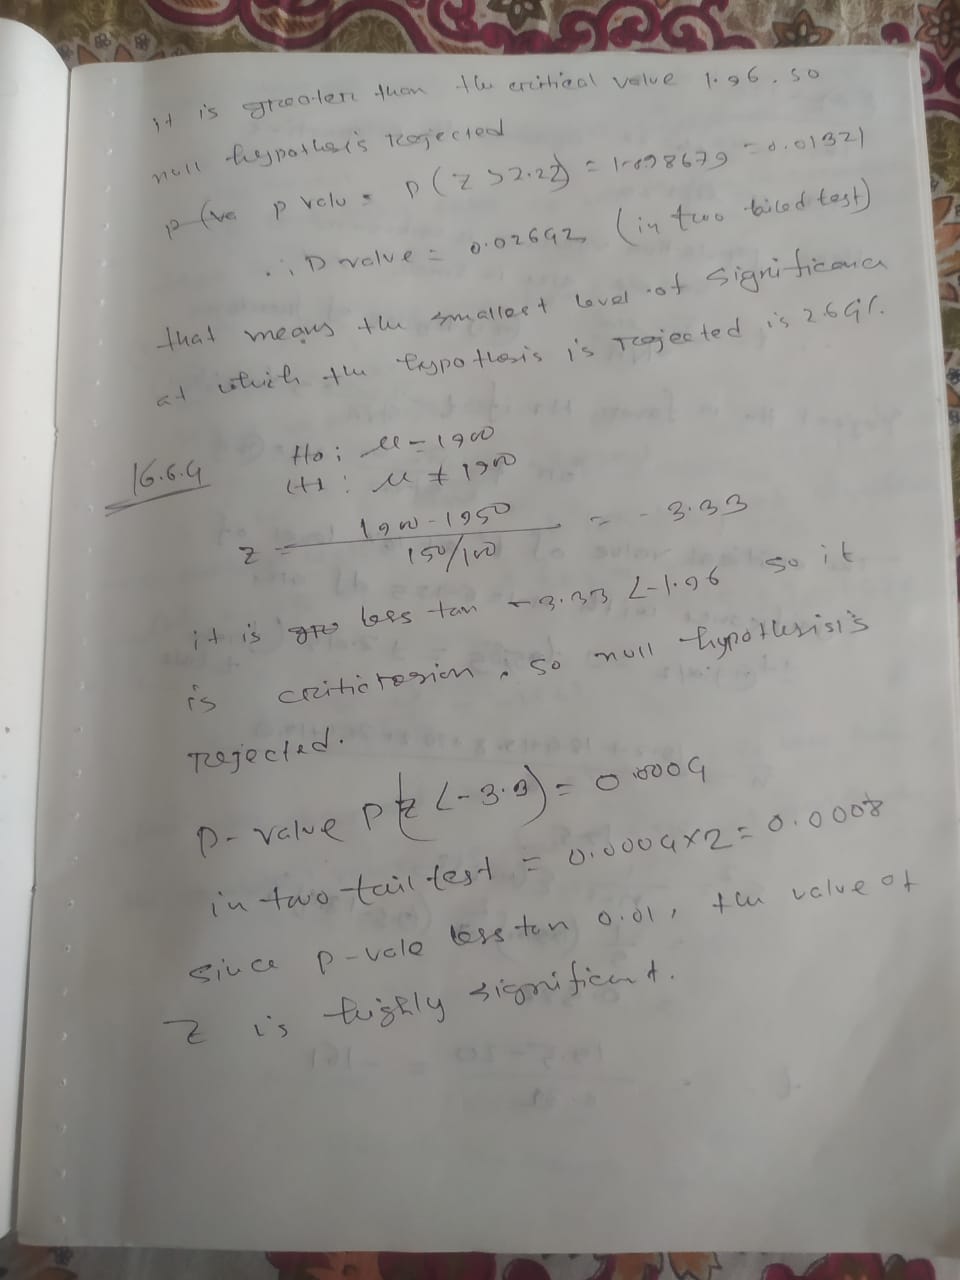 it is greater than the critical value 1.96. so
null hypothesis rejected
p (ve p valu = P(Z>2.22) = 1-098679 = 0.01321
∴ P value = 0.02642 (in two tailed test)
that means the smallest level of significance
at which the hypothesis is rejected is 2.64%.
16.6.4 H0: μ = 1900
H1: μ ≠ 1900
Z = 1900-1950 / 150/100 = -3.33
it is less tan -3.33 <-1.96 so it
is . so null hypothesis is
rejected.
P-value P(Z <-3.3) = 0.0004
in two-tail test = 0.0004×2 = 0.0008
since P-vale less tan 0.01, the value of
Z is highly significant.